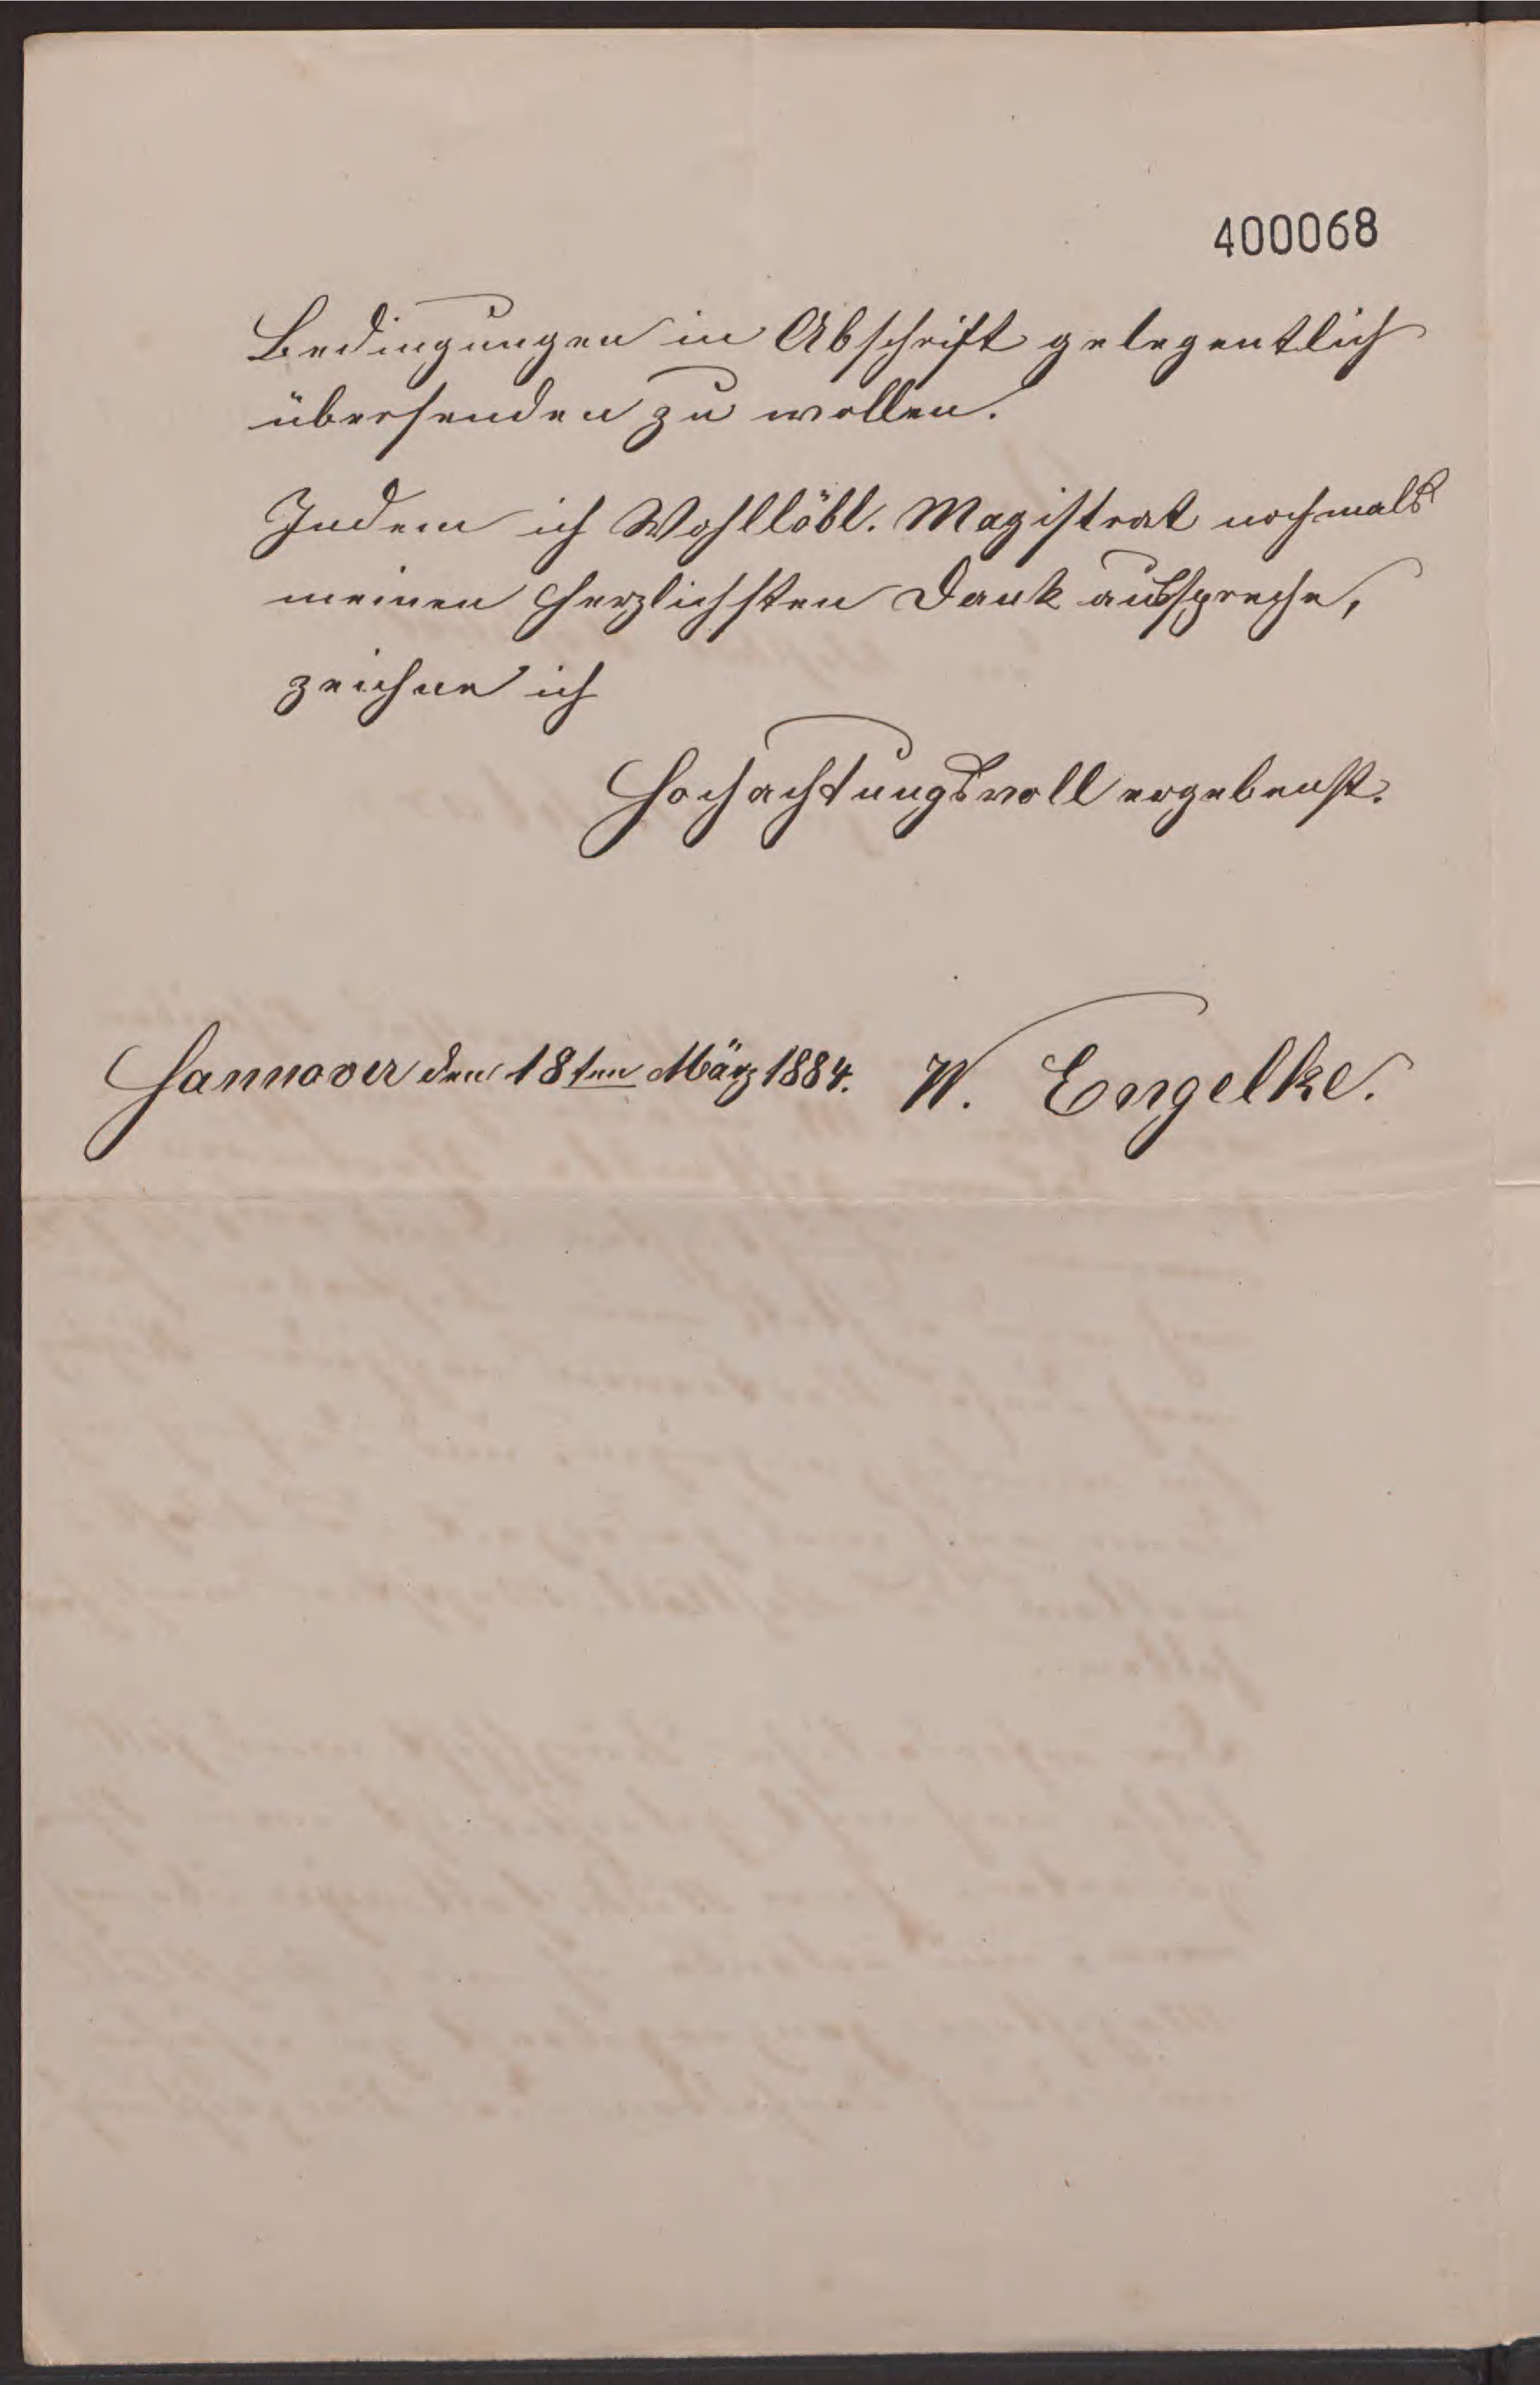 400068
Bedingungen in Abschrift gelegentlich
übersenden zu wollen.
Indem ich Wohllöbl. Magistrat nochmals
meinen herzlichsten Dank ausspreche,
zeichne ich
Hochachtungsvoll ergebenst.
Hannover den 18ten März 1884. W. Engelke.